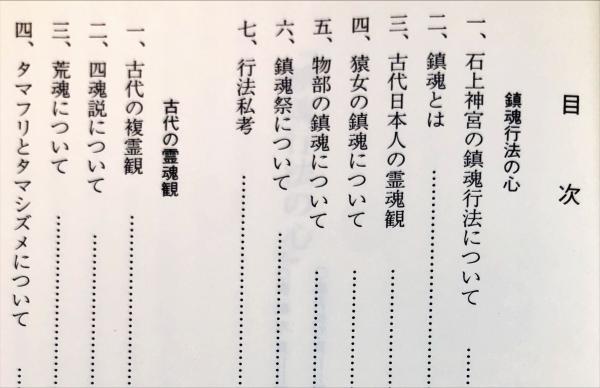 目次
鎮魂行法の心
一、石上神宮の鎮魂行法について
二、鎮魂とは
三、古代日本人の霊魂観
四、猿女の鎮魂について
五、物部の鎮魂について
六、鎮魂祭について
七、行法私考
古代の霊魂観
一、古代の複霊観
二、四魂説について
三、荒魂について
四、タマフリとタマシズメについて